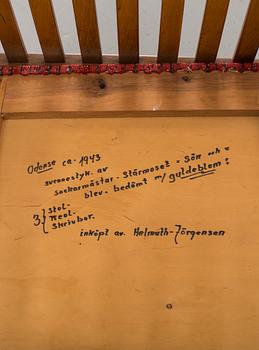 Odense ca. 1943
svenneestyk. av
snekarmästar. Stärmose - Sön och =
blev. bedömt m/ guldeblom :
3 } Stol-
Reol-
Skrivbor.
inköpt av. Helmuth-Jörgensen